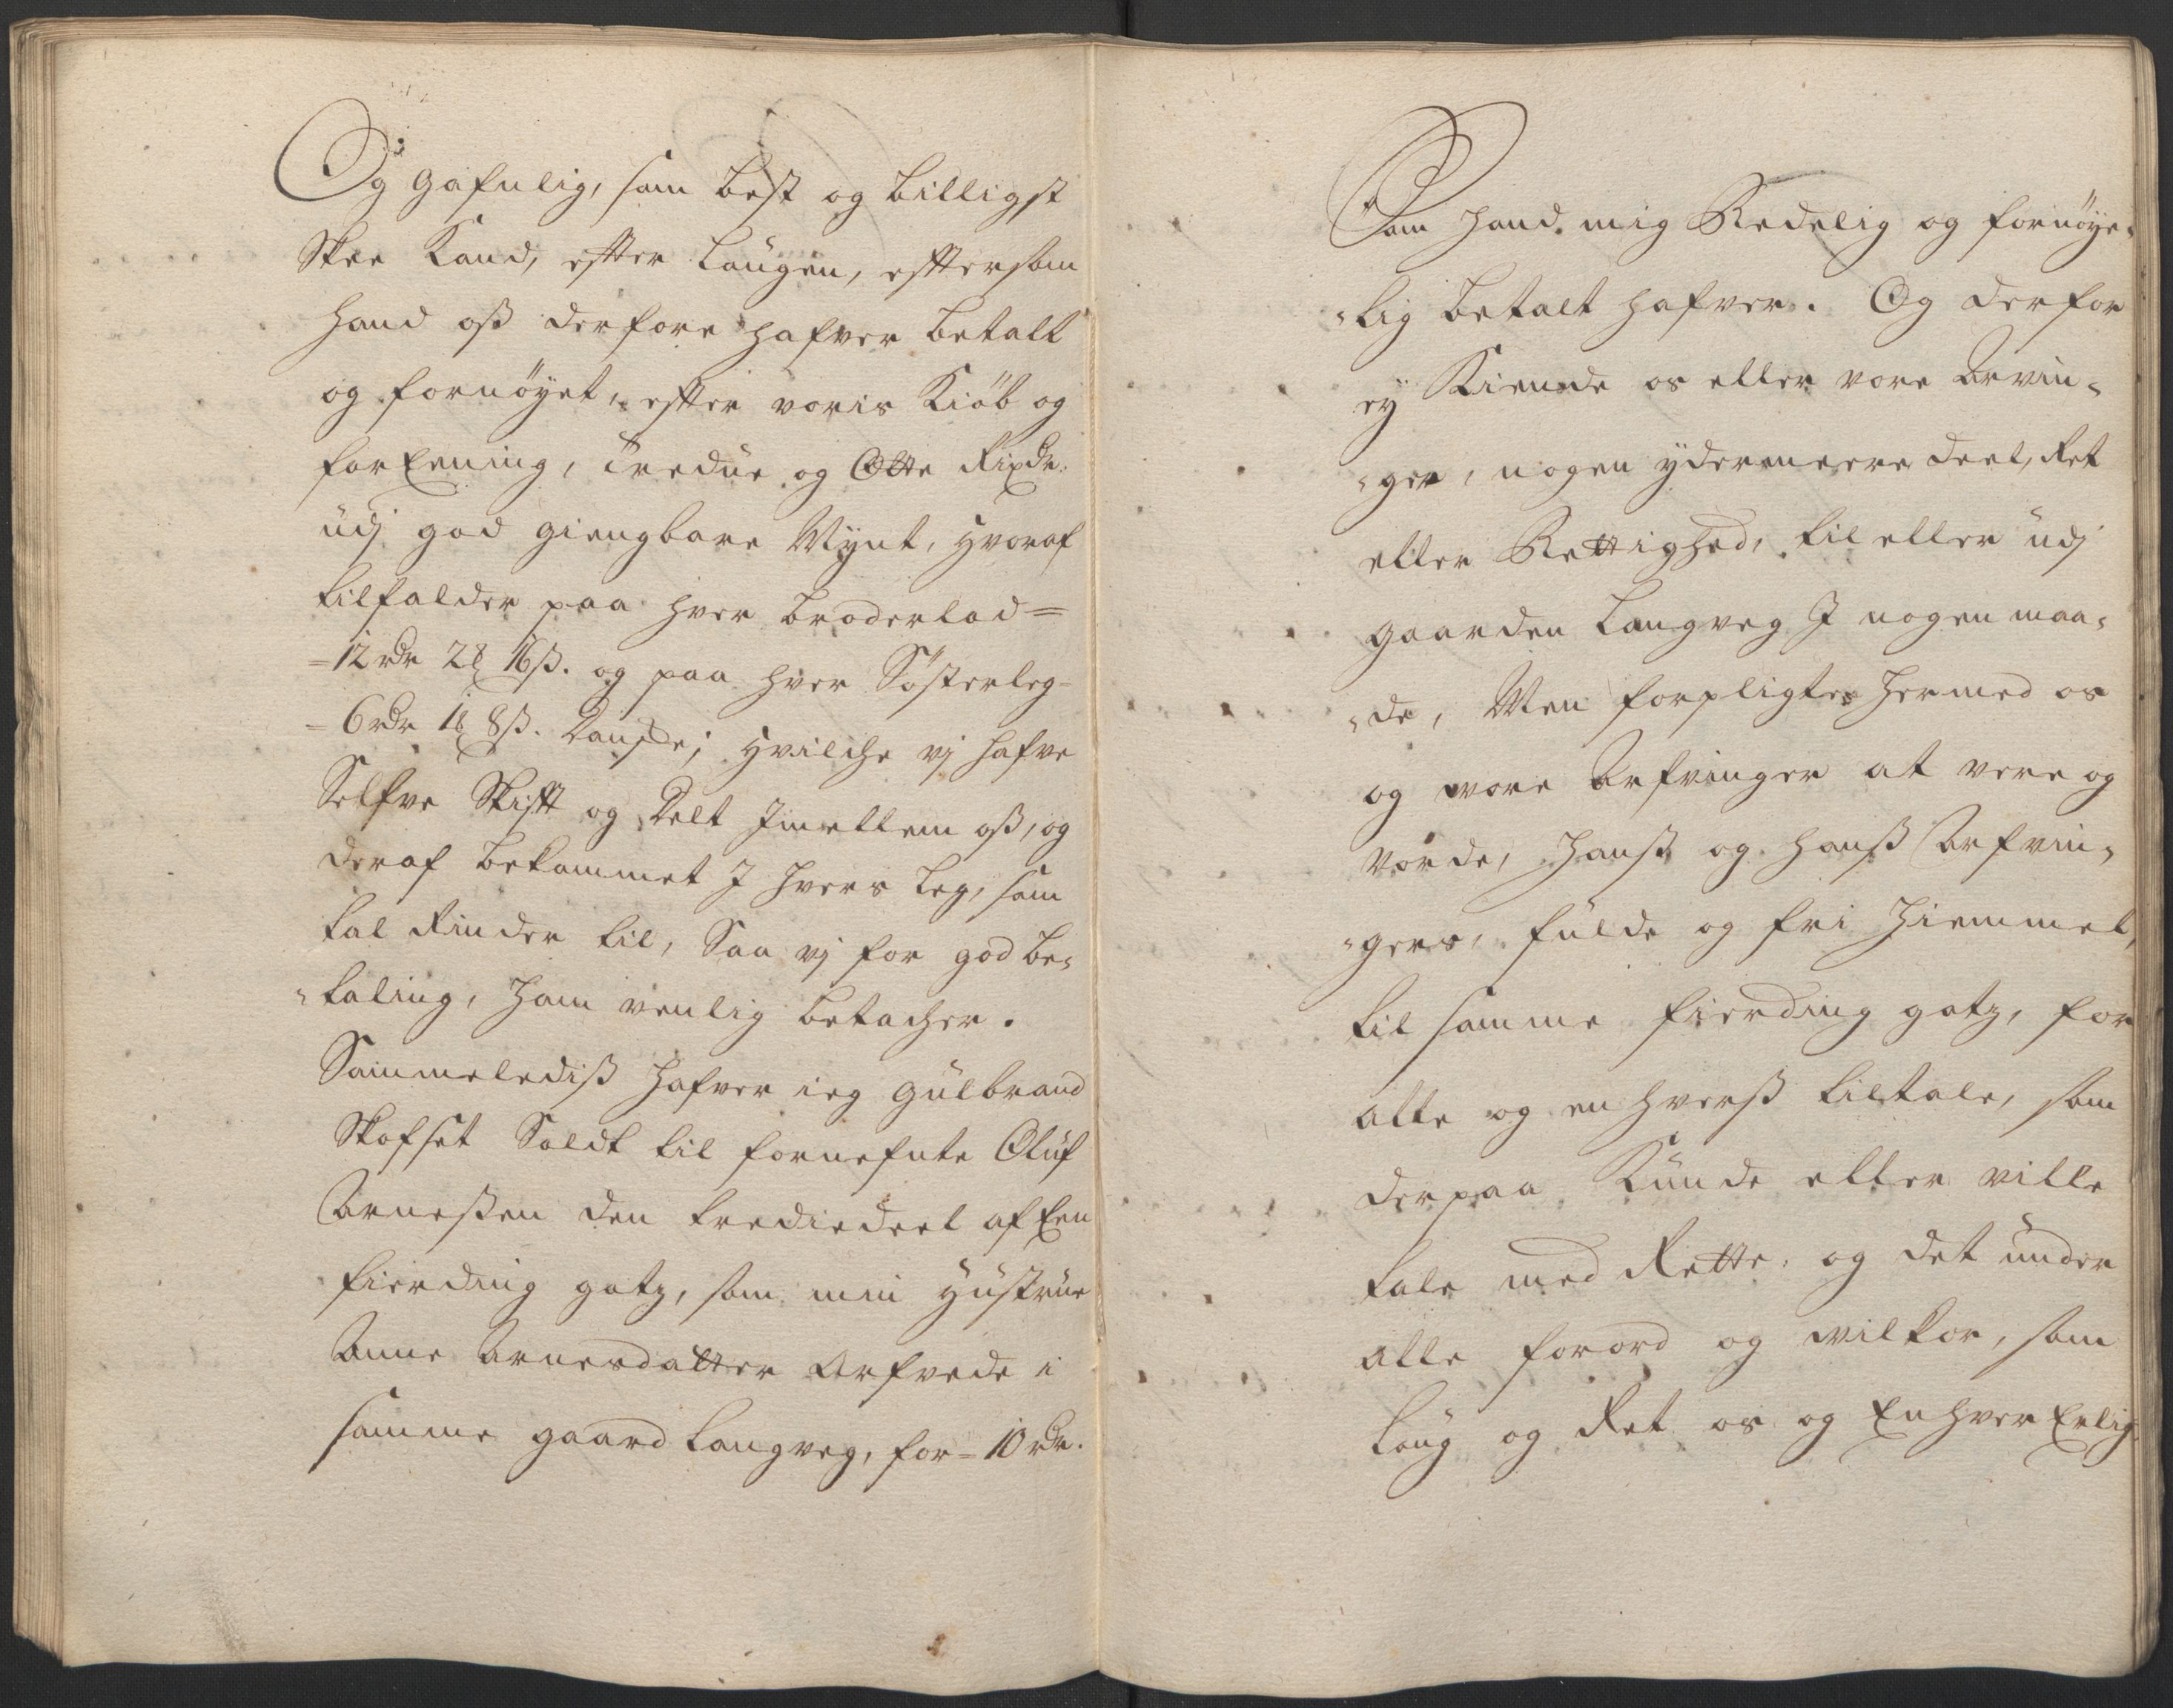 Og gafnlig, som best og billigst
Skee Kand, efter Laugen, efftersom
hand oß derfore hafver betalt
og fornöyet, effter voris Kiöb og
forEening, Tredue og Otte Rixdr:
udj god giengbare Mynt, hvoraf
tilfalder paa hver broderlod=
=12 rdr 2 16 ß. og paa hver Sösterleg-
= 6 rdr 1 8 ß. Danske; hvilche vj hafve
Selfve Skifft og Delt Imellem oß, og
deraf bekommet I hvers Leg, som
tal Rinder til, Saa vj for god be-
-taling, ham venlig betacher.
Sammelediß hafver ieg Gulbrand
Skofset Soldt til fornefnte Oluf
Arneßen den trediedeel af Een
fierding gotz, som min Hustrue
Anne Arnesdatter Arfvede i
samme gaard Langveg, for = 10 rdr.
Som hand mig Redelig og fornöye-
-lig betalt hafver. Og derfor
ey Kiende os eller vore Arvin-
-ger, nogen ydermeere deel, Ret
eller Rettighed, til eller udj
gaarden Langveg I nogen maa-
-de, Men forpligter hermed os
og vore Arfvinger at vere og
vorde, hanß og hanß Arfvin-
-gers, fulde og fri hiemmel,
til samme fierding gotz, for
alle og en hverß tiltale, som
derpaa Kunde eller ville
tale med Rette, og det under
alle forord og wilkor, som
Loug og Ret os og Enhver Erlig